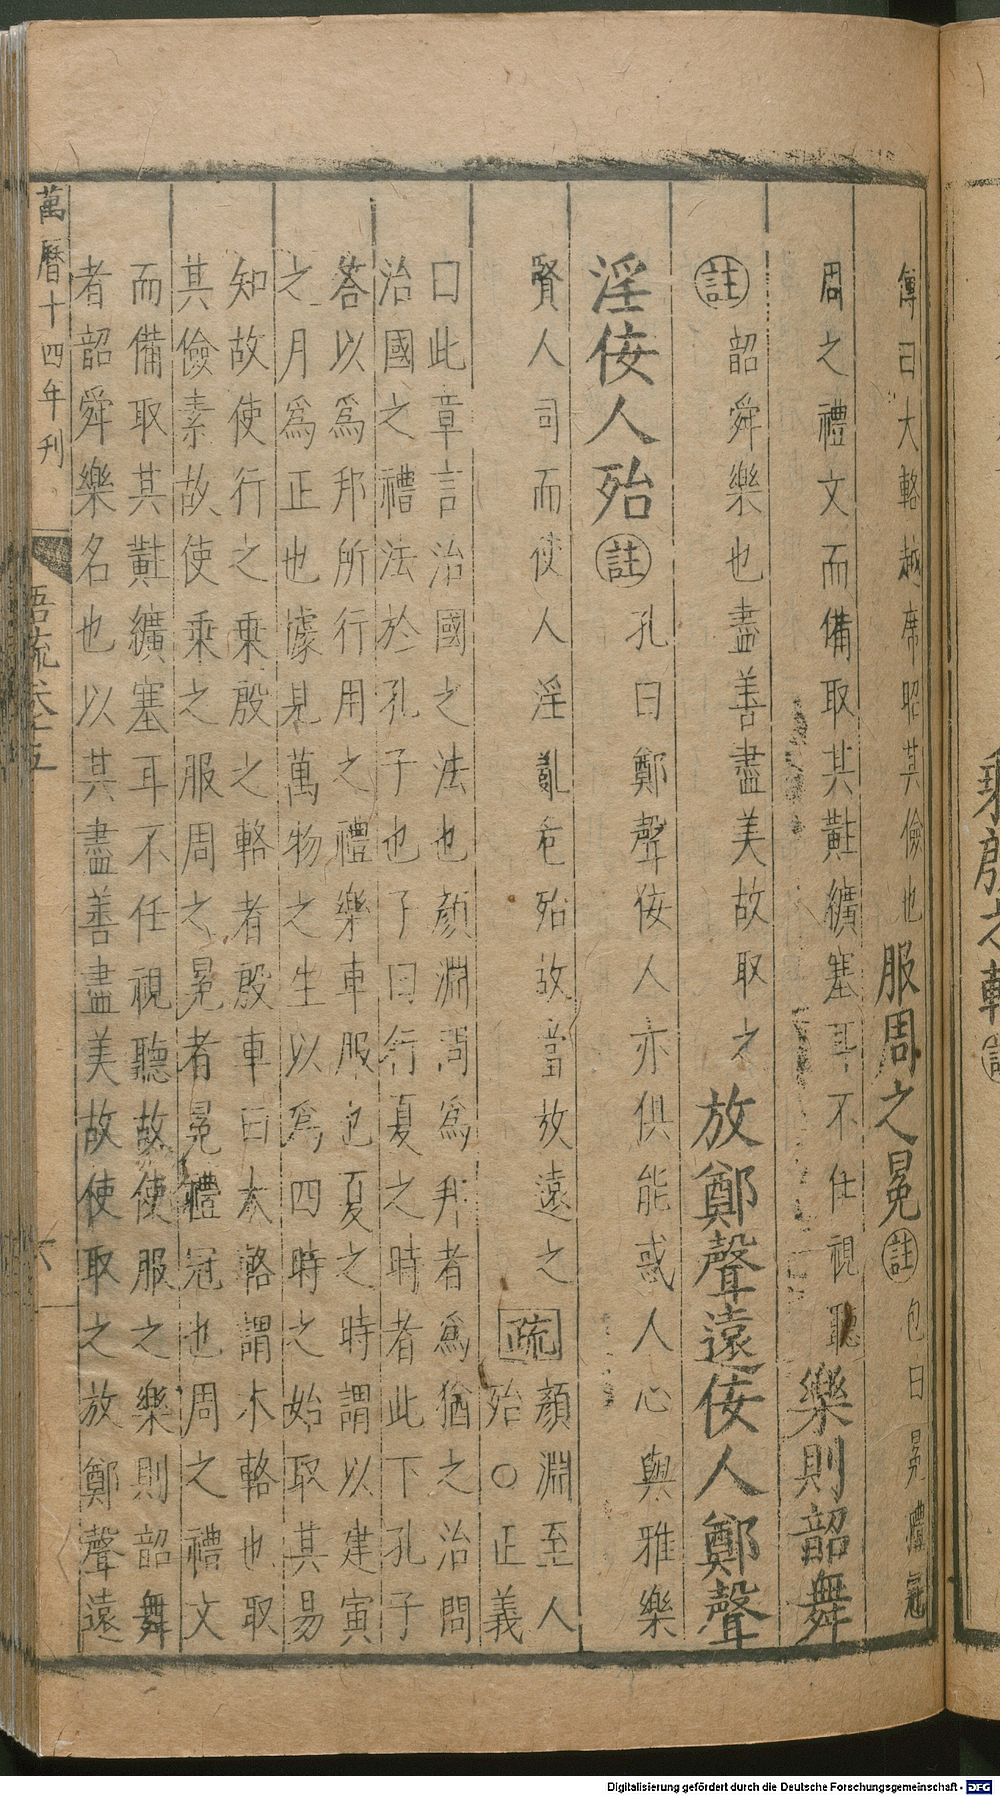 傳曰大輅越席昭其儉也服周之冕註包曰冕禮冠
周之禮文而備取其黈纊塞耳不任視聽樂則韶舞
註韶舜樂也盡善盡美故取之放鄭聲遠佞人鄭聲
淫佞人殆註孔曰鄭聲佞人亦俱能惑人心與雅樂
賢人同而使人淫亂危殆故當放遠之疏顏淵至人
殆○正義
曰此章言治國之法也顏淵問爲邦者爲猶之治問
治國之禮法於孔子也子曰行夏之時者此下孔子
答以爲邦所行用之禮樂車服也夏之時謂以建寅
之月爲正也據見萬物之生以爲四時之始取其易
知故使行之乗殷之輅者殷車曰大輅謂木輅也取
其儉素故使乘之服周之冕者冕禮冠也周之禮文
而備取其黈纊塞耳不任視聽故使服之樂則韶舞
者韶舜樂名也以其盡善盡美故使取之放鄭聲遠
萬曆十四年刊
語疏卷十五
六
乘殷之輅註
Digitalisierung gefördert durch die Deutsche Forschungsgemeinschaft - DFG